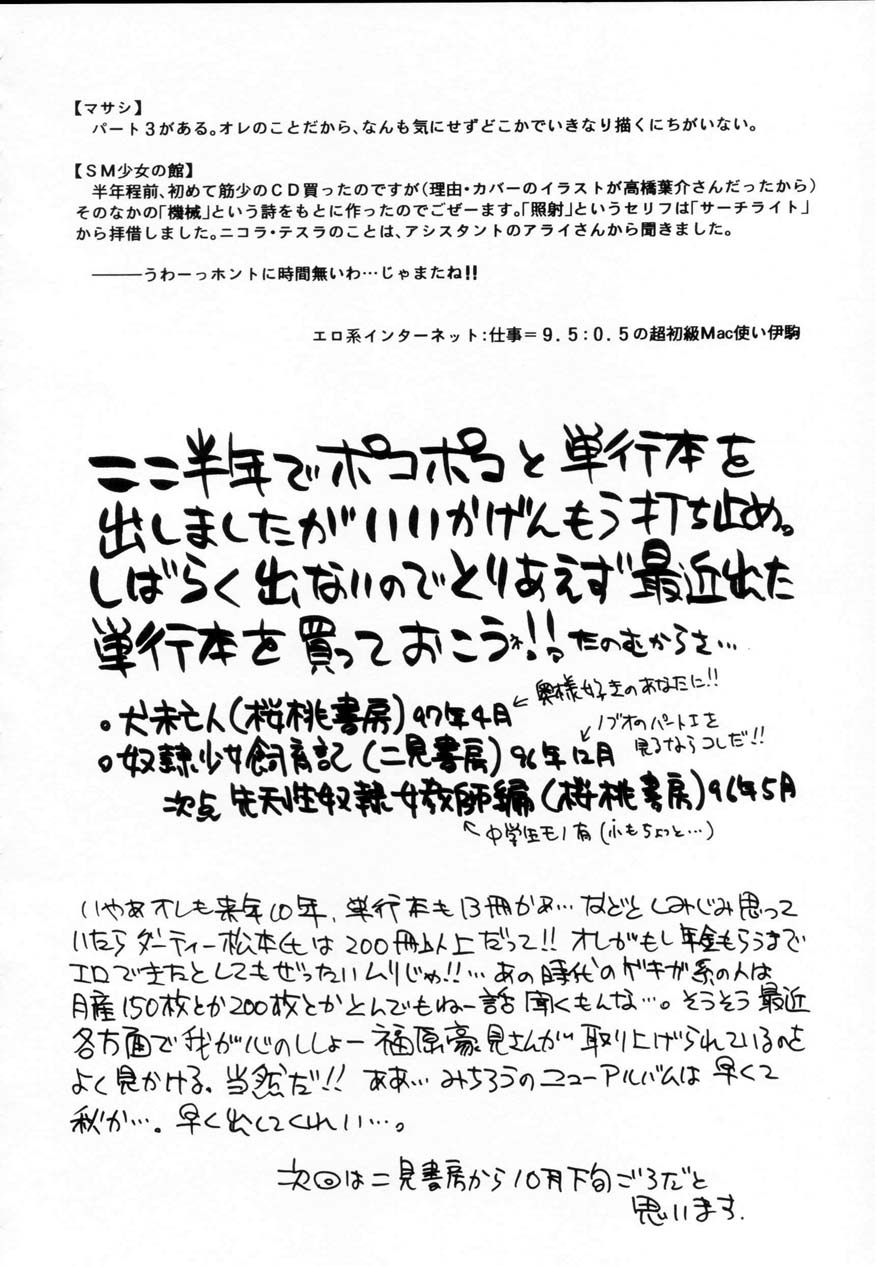 【マサシ】
パート3がある。オレのことだから、なんも気にせずどこかでいきなり描くにちがいない。
【SM少女の館】
半年程前、初めて筋少のCD買ったのですが(理由・カバーのイラストが高橋葉介さんだったから)
そのなかの「機械」という詩をもとに作ったのでごぜーます。「照射」というセリフは「サーチライト」
から拝借しました。ニコラ・テスラのことは、アシスタントのアライさんから聞きました。
―――うわーっホントに時間無いわ…じゃまたね!!
エロ系インターネット:仕事=9.5:0.5の超初級Mac使い伊駒
ここ半年でポコポコと単行本を
出しましたがいいかげんもう打ち止め。
しばらく出ないのでとりあえず最近出た
単行本を買っておこうネ!!たのむからさ…
。犬未亡人(桜桃書房)97年4月 ←奥様好きのあなたに!!
。奴隷少女飼育記(二見書房)96年12月 ←ノブオのパートエを
見るならコレだ!!
次点 先天性奴隷女教師編(桜桃書房)96年5月
↖中学生モノ有(小もちょっと…)
いやあオレも来年10年、単行本も13冊かぁ…などとしみじみ思って
いたらダーティー松本氏は200冊以上だって!!オレがもし年金もらうまで
エロで生きたとしてもぜったいムリじゃ!!…あの時代のゲキガ系の人は
月産150枚とか200枚とかとんでもねー話聞くもんな…。そうそう最近
各方面で我が心のししょー福原豪見さんが取り上げられているのを
よく見かける。当然だ!!ああ…みちろうのニューアルバムは早くて
秋か…。早く出してくれい…。
次回は二見書房から10月下旬ごろだと
思います.